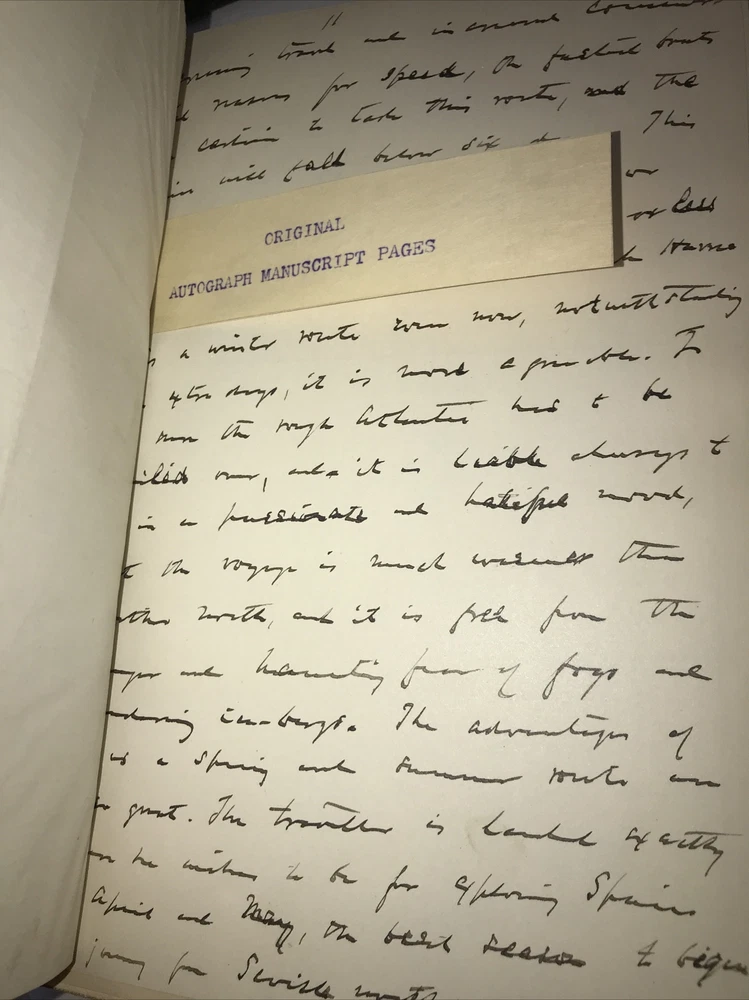 11
travel and in general
reasons for speed, the fastest boats
certain to take this route, and the
will fall below six This
or
or less
ORIGINAL
AUTOGRAPH MANUSCRIPT PAGES
Havre
a winter route even now, notwithstanding
extra days, it is more agreeable. To
sure the rough Atlantic has to be
over, and it is liable always to
in a passionate and hateful mood,
the voyage is much warmer than
north, and it is free from the
and haunting fear of fogs and
ice-bergs. The advantages of
as a Spring and summer route are
great. The traveller is landed exactly
he wishes to be for exploring Spain
April and May, the best season to begin
journey from Seville north